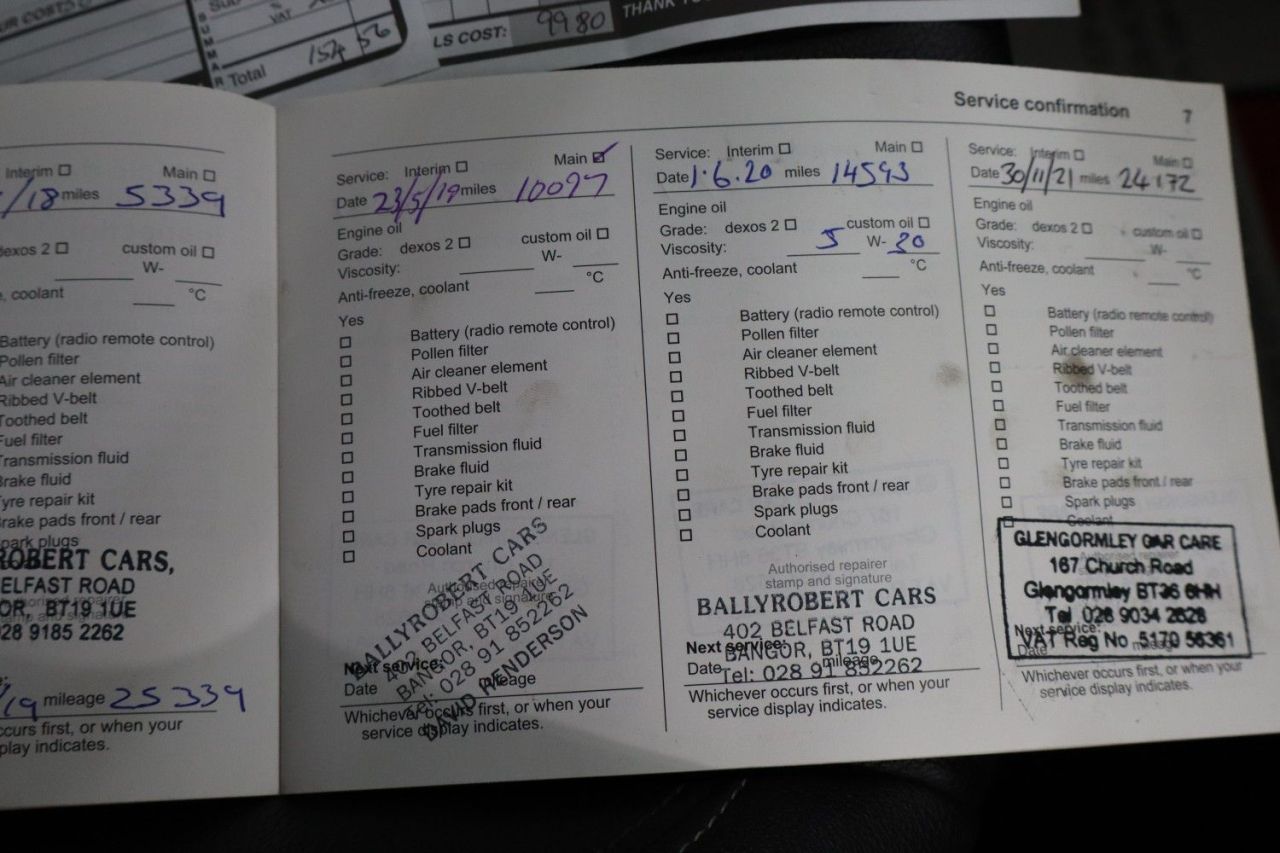 UR COSTS
SUMMAR
Sub
VAT
Total 154 56
LS COST: 99 80
THANK YO
Interim ☐ Main ☐
/18 miles 5339
dexos 2 ☐ custom oil ☐
W-
, coolant
°C
Battery (radio remote control)
Pollen filter
Air cleaner element
Ribbed V-belt
Toothed belt
Fuel filter
Transmission fluid
Brake fluid
Tyre repair kit
Brake pads front / rear
Spark plugs
ROBERT CARS,
ELFAST ROAD
OR, BT19 1UE
028 9185 2262
/19 mileage 25339
ccurs first, or when your
play indicates.
Service: Interim ☐ Main ☑
Date 23/5/19 miles 10097
Engine oil
Grade: dexos 2 ☐ custom oil ☐
Viscosity: W-
Anti-freeze, coolant °C
Yes
☐ Battery (radio remote control)
☐ Pollen filter
☐ Air cleaner element
☐ Ribbed V-belt
☐ Toothed belt
☐ Fuel filter
☐ Transmission fluid
☐ Brake fluid
☐ Tyre repair kit
☐ Brake pads front / rear
☐ Spark plugs
☐ Coolant
Authorised repairer
stamp and signature
BALLYROBERT CARS
402 BELFAST ROAD
BANGOR, BT19 1UE
Tel: 028 91 852262
DAVID HENDERSON
Next service:
Date mileage
Whichever occurs first, or when your
service display indicates.
Service confirmation 7
Service: Interim ☐ Main ☐
Date 1.6.20 miles 14593
Engine oil
Grade: dexos 2 ☐ custom oil ☐
Viscosity: 5 W- 30
Anti-freeze, coolant °C
Yes
☐ Battery (radio remote control)
☐ Pollen filter
☐ Air cleaner element
☐ Ribbed V-belt
☐ Toothed belt
☐ Fuel filter
☐ Transmission fluid
☐ Brake fluid
☐ Tyre repair kit
☐ Brake pads front / rear
☐ Spark plugs
☐ Coolant
Authorised repairer
stamp and signature
BALLYROBERT CARS
402 BELFAST ROAD
BANGOR, BT19 1UE
Tel: 028 91 852262
Next service:
Date mileage
Whichever occurs first, or when your
service display indicates.
Service: Interim ☐ Main ☐
Date 30/11/21 miles 24172
Engine oil
Grade: dexos 2 ☐ custom oil ☐
Viscosity: W-
Anti-freeze, coolant °C
Yes
☐ Battery (radio remote control)
☐ Pollen filter
☐ Air cleaner element
☐ Ribbed V-belt
☐ Toothed belt
☐ Fuel filter
☐ Transmission fluid
☐ Brake fluid
☐ Tyre repair kit
☐ Brake pads front / rear
☐ Spark plugs
☐ Coolant
Authorised repairer
GLENGORMLEY CAR CARE
167 Church Road
Glengormley BT36 6HH
Tel 028 9034 2828
VAT Reg No 5170 56361
Next service:
Date mileage
Whichever occurs first, or when your
service display indicates.